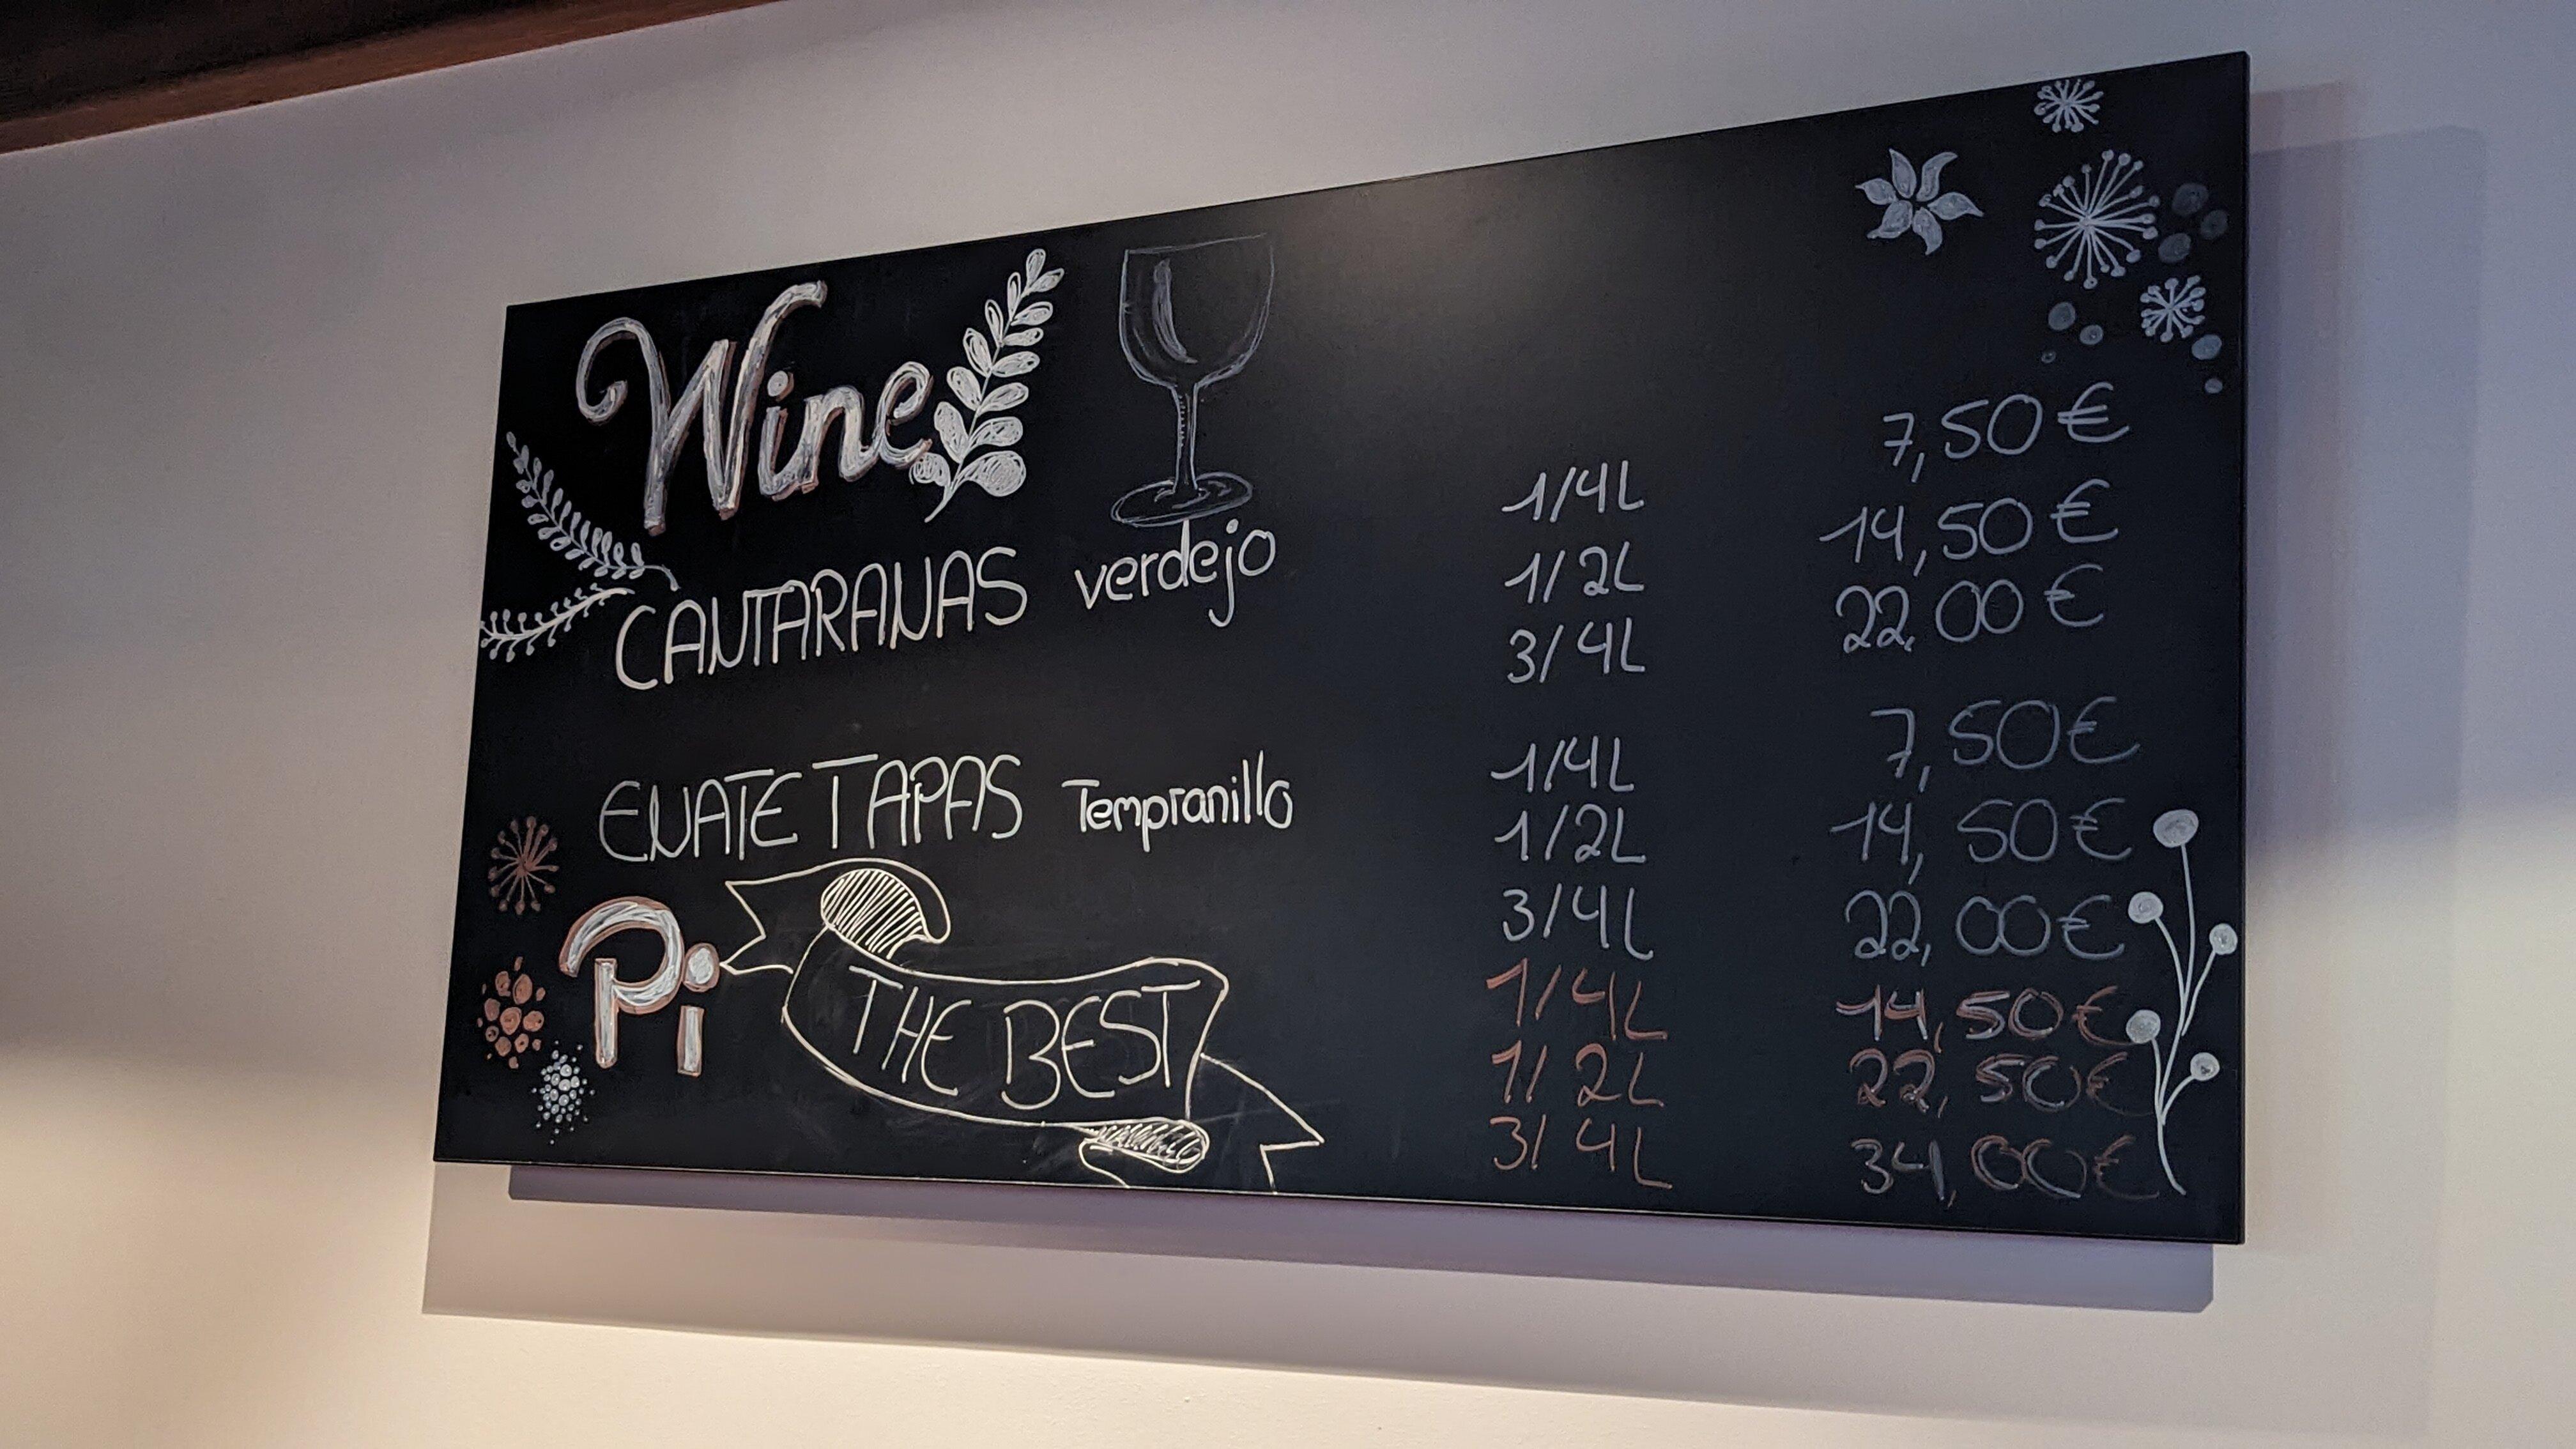 Wine
CANTARANAS verdejo
1/4L 7,50€
1/2L 14,50€
3/4L 22,00€
ENATE TAPAS Tempranillo
1/4L 7,50€
1/2L 14,50€
3/4L 22,00€
Pi THE BEST
1/4L 14,50€
1/2L 22,50€
3/4L 34,00€